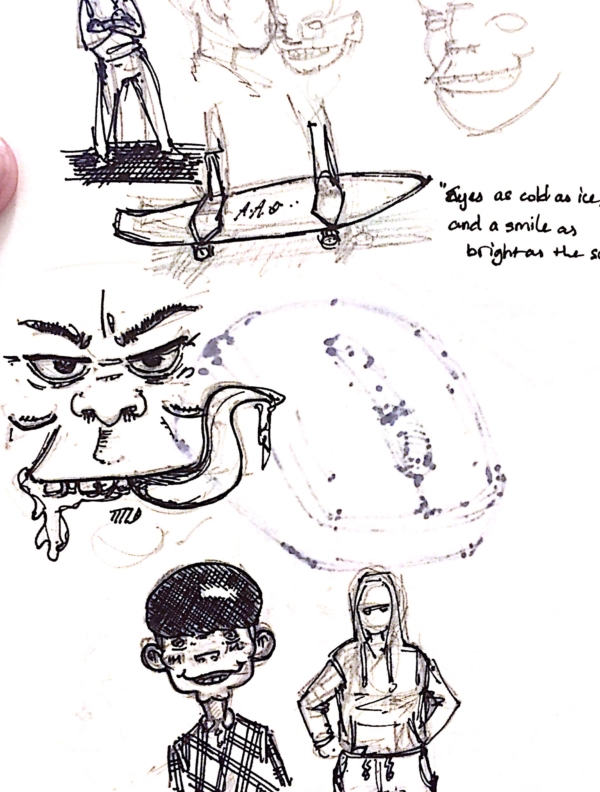 A.A
"Eyes as cold as ice,
and a smile as
bright as the